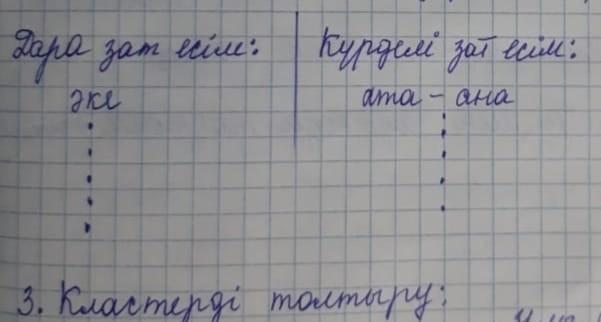 Дара зат есім:
Күрделі зат есім:
әке
ата - ана
3. Кластерді толтыру: